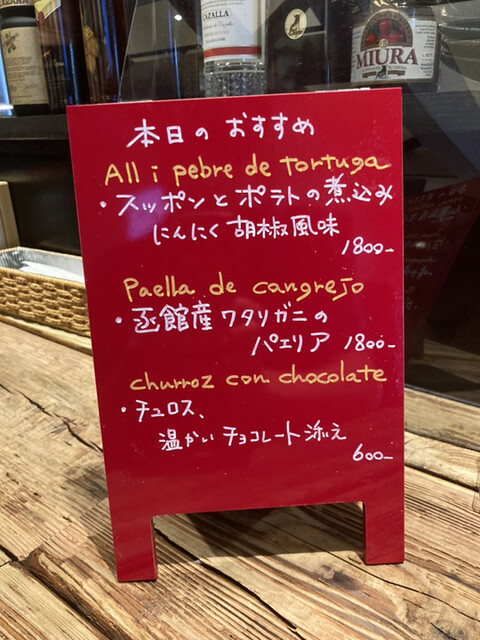 CAZALLA
MIURA
本日の おすすめ
All i pebre de tortuga
・スッポンとポテトの煮込み
にんにく胡椒風味
1800-
Paella de cangrejo
・函館産ワタリガニの
パエリア 1800-
churroz con chocolate
・チュロス、
温かいチョコレート添え
600-